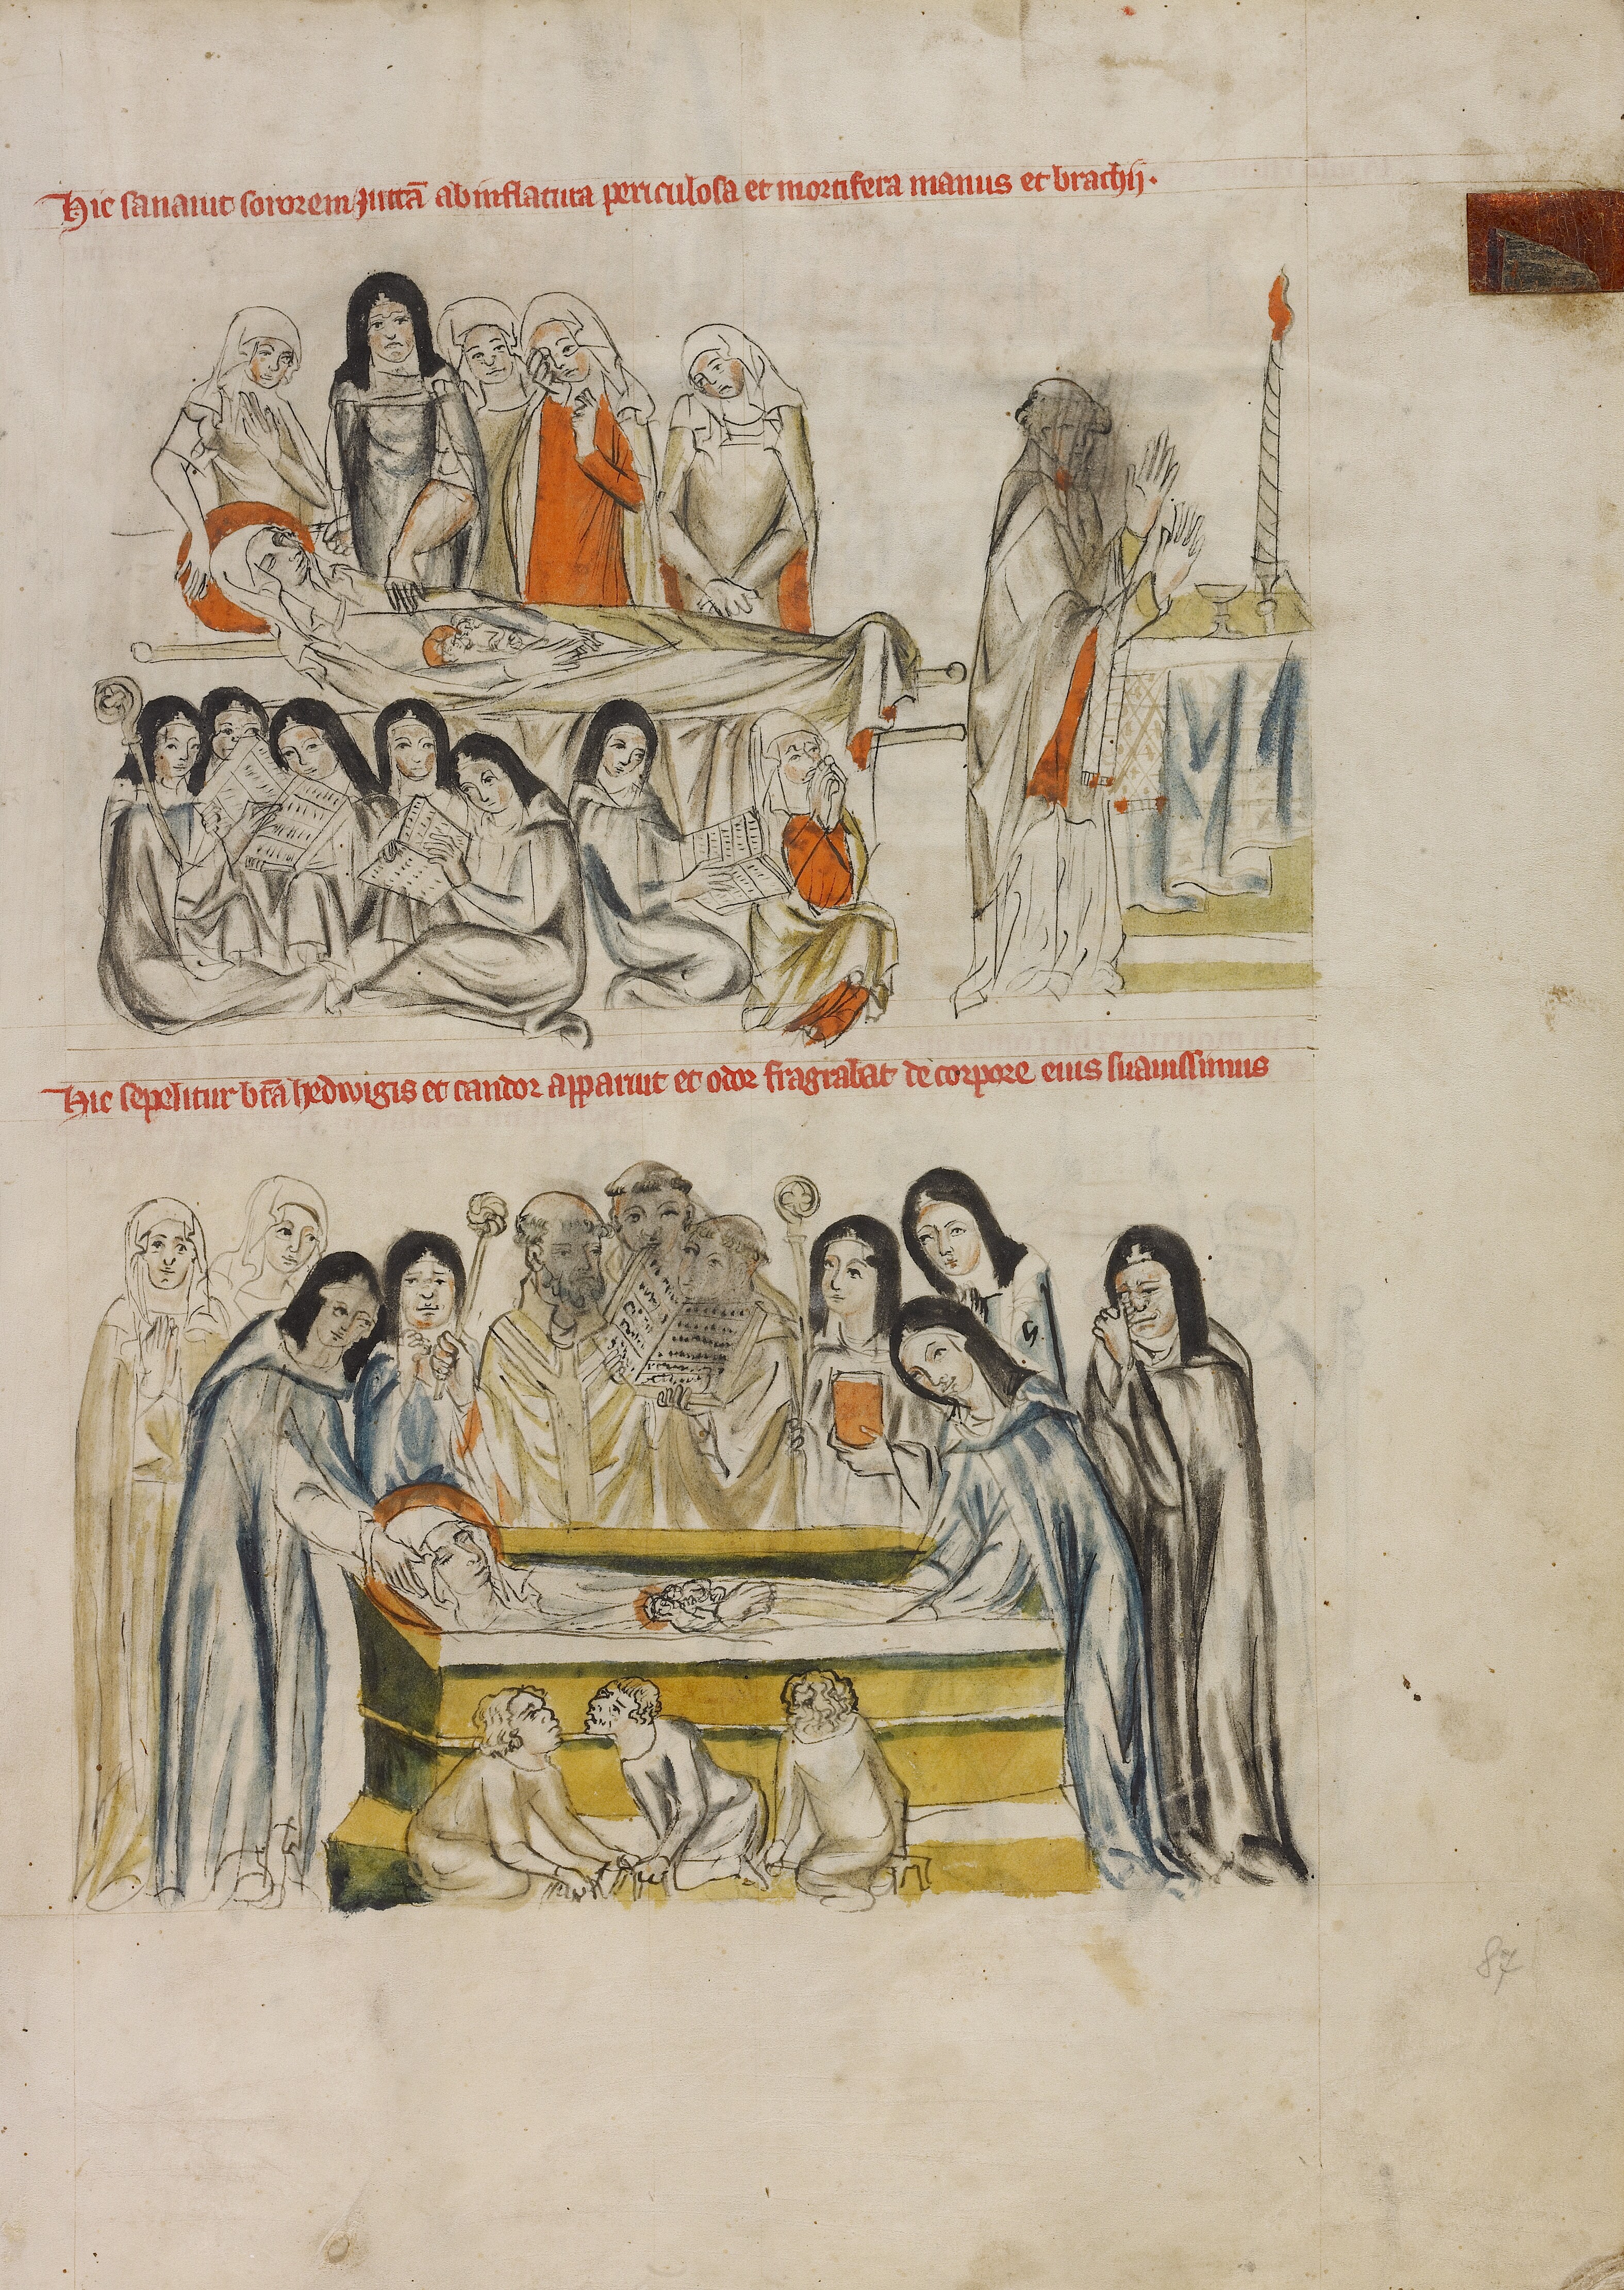 Hic sanauit sororem Juttā ab inflatura periculosa et mortifera manus et brachij.
Hic sepelitur bt̄a hedwigis et candor apparuit et odor fragrabat de corpore eius suauissimus
87